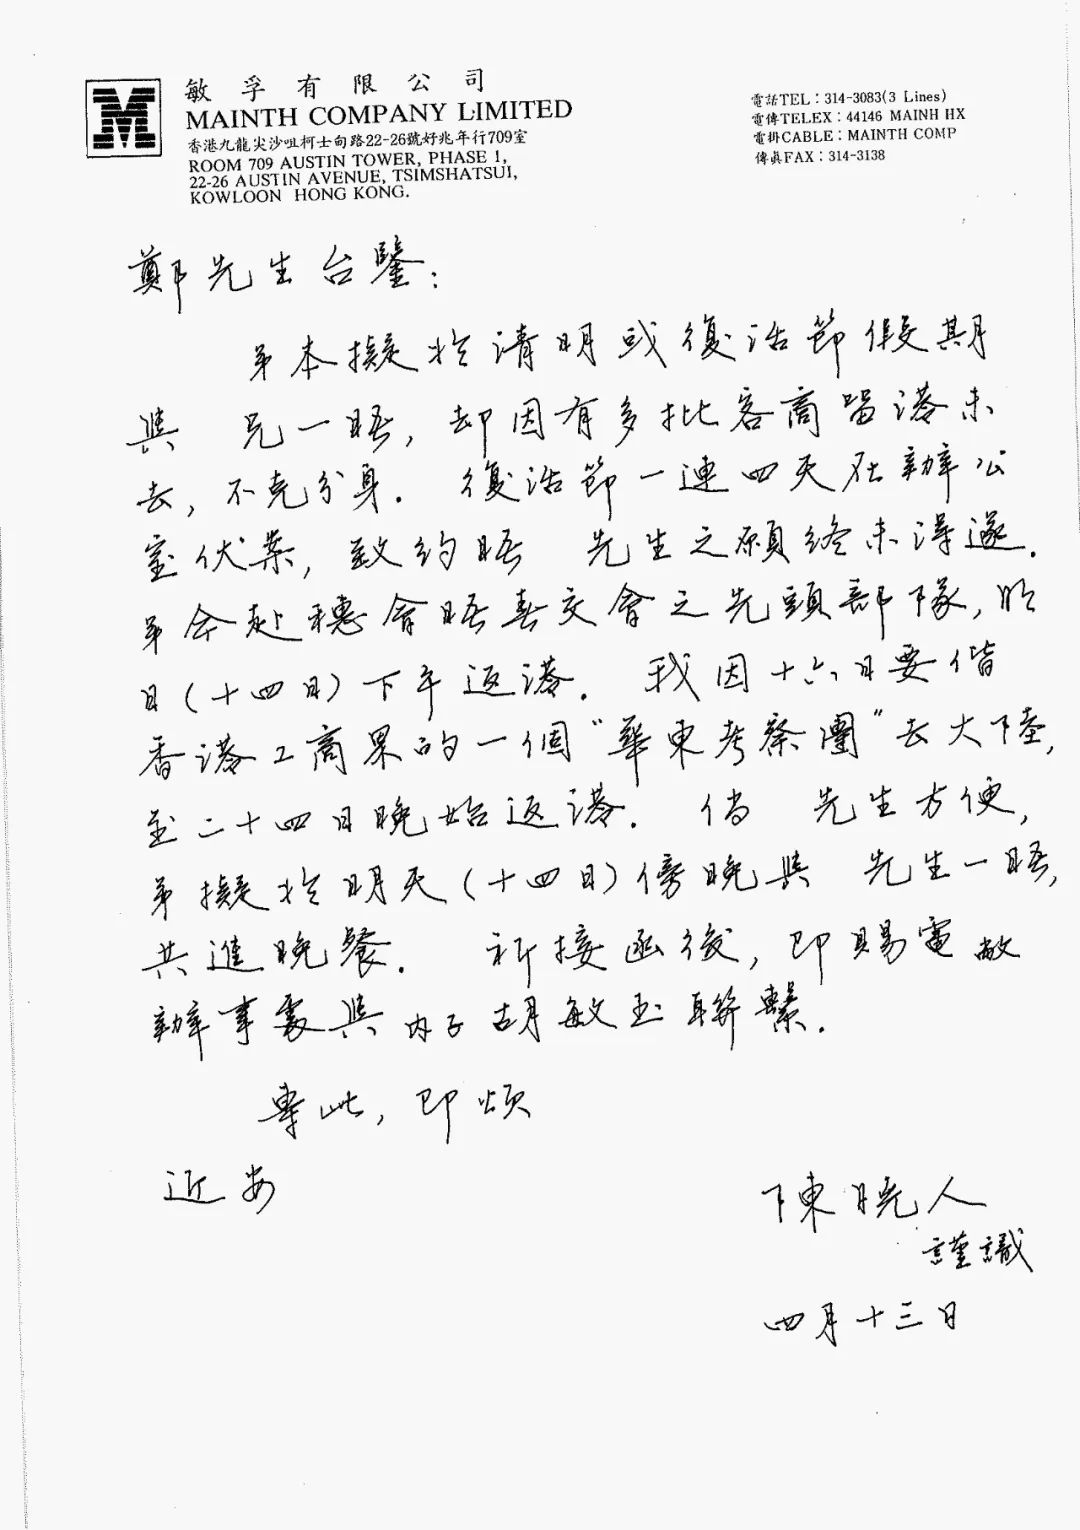 敏孚有限公司
MAINTH COMPANY LIMITED
香港九龍尖沙咀柯士甸路22-26號好兆年行709室
ROOM 709 AUSTIN TOWER, PHASE 1,
22-26 AUSTIN AVENUE, TSIMSHATSUI,
KOWLOON HONG KONG.
電話TEL：314-3083(3 Lines)
電傳TELEX：44146 MAINH HX
電掛CABLE：MAINTH COMP
傳眞FAX：314-3138
鄭先生台鑒：
弟本擬於清明或復活節假期
與 兄一晤，却因有多批客商留港未
去，不克分身. 復活節一連四天在辦公
室伏案，致約晤 先生之願終未得遂.
弟今赴穗會晤春交會之先頭部隊，明
日(十四日)下午返港. 我因十六日要偕
香港工商界的一個"華東考察團"去大陸，
至二十四日晚始返港. 倘 先生方便，
弟擬於明天(十四日)傍晚與 先生一晤，
共進晚餐. 祈接函後，即賜電敝
辦事處與內子胡敏玉聯繫.
專此，即頌
近安
陳曉人
謹識
四月十三日